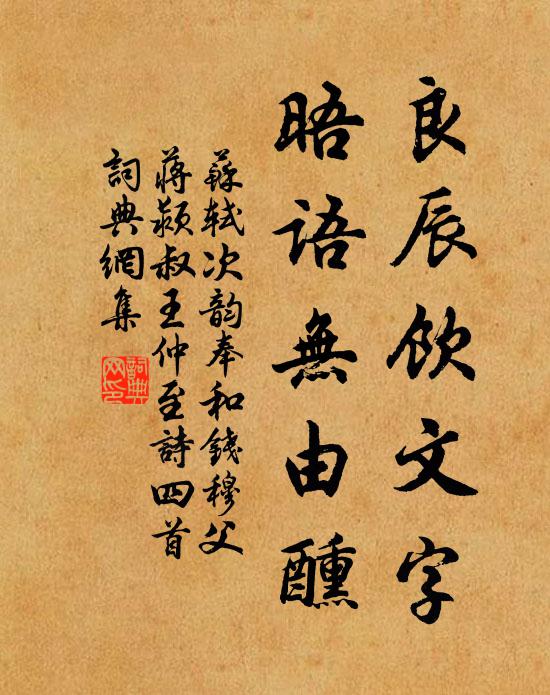 良辰飲文字
晤語無由醺
蘇軾次韵奉和錢穆父
蔣颍叔王仲至詩四首
詞典網集
詞典
网印